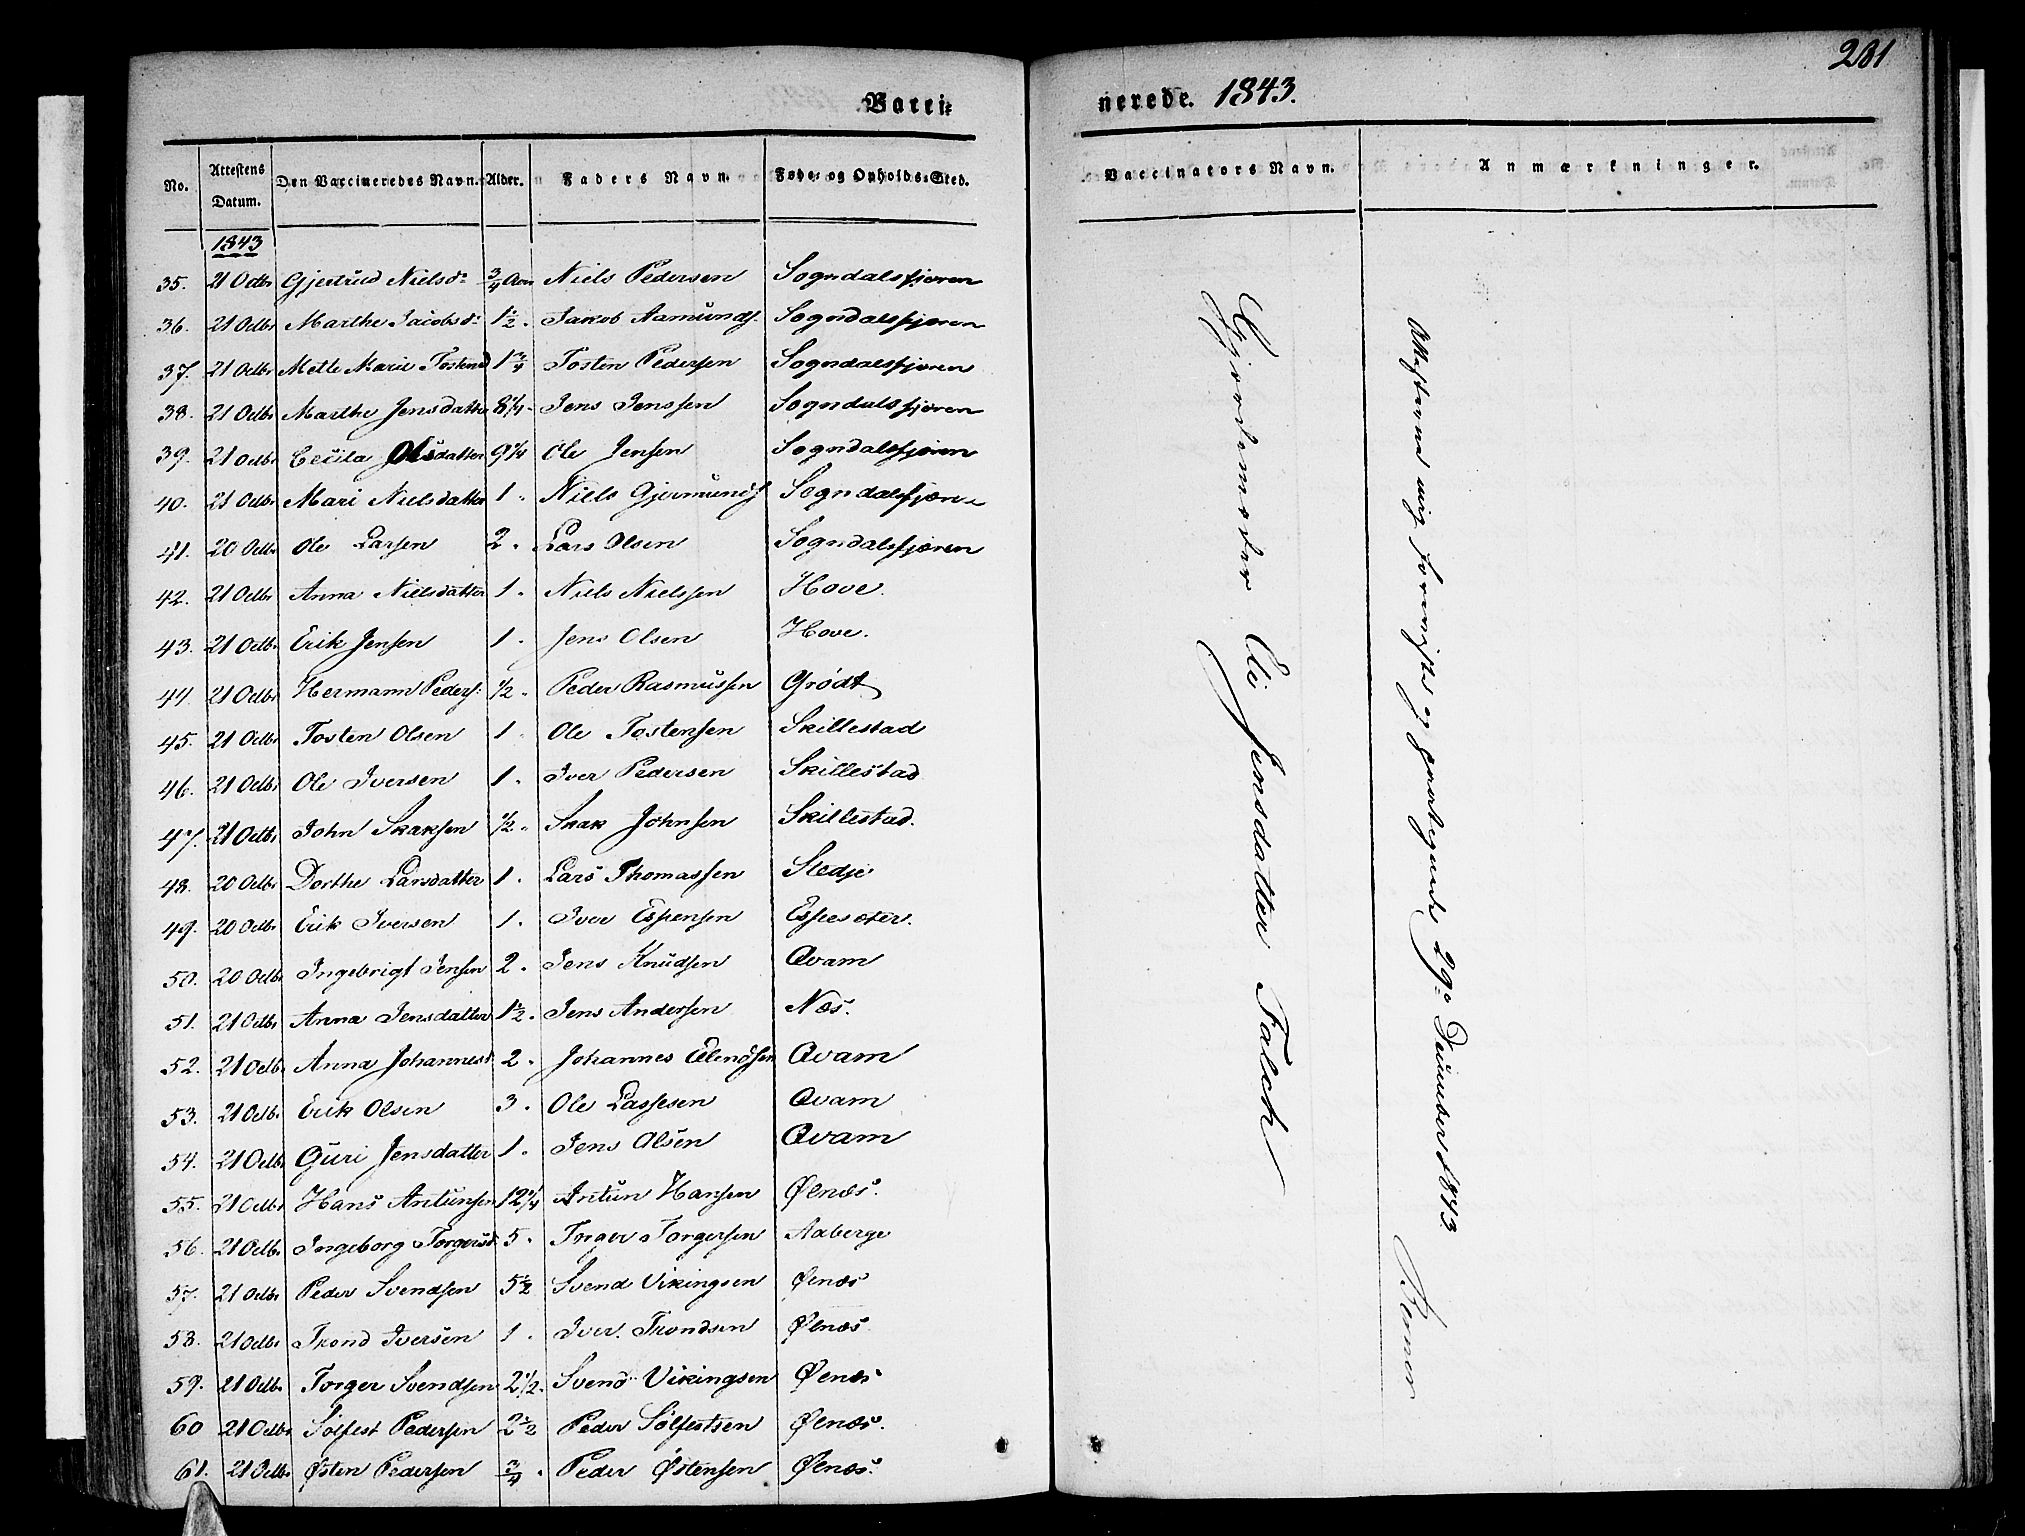 281
Vacci= nerede. 1843.
No. Attestens Datum. Den Vaccineredes Navn. Alder. Faders Navn. Føde- og Opholds-Sted. Vaccinators Navn. Anmærkninger.
1843
35. 21 Octbr Gjertrud Nielsdr 3/4 Aar Niels Pedersen Sogndalsfjæren
36. 21 Octbr Marthe Jacobsdr 1 1/2. Jakob Aamunds. Sogndalsfjæren
37. 21 Octbr Mette Marie Tostensd 1 3/4 Tosten Pedersen Sogndalsfjæren
38. 21 Octbr Marthe Jensdatter 8 1/4. Jens Jenssen Sogndalsfjæren
39. 21 Octbr Cecila Olsdatter 9 1/4 Ole Jensen Sogndalsfjæren
40. 21 Octbr Mari Nielsdatter 1. Niels Gjermunds Sogndalsfjæren
41. 20 Octbr Ole Larsen 2. Lars Olsen Sogndalsfjæren
42. 21 Octbr Anna Nielsdatter 1. Niels Nielssen Hove.
43. 21 Octbr Erik Jensen 1. Jens Olsen Hove.
44. 21 Octbr Hermann Peders: 1/2. Peder Rasmussen Grødt
45. 21 Octbr Tosten Olsen 1. Ole Tostensen Skillestad
46. 21 Octbr Ole Iversen 1. Iver Pedersen Skillestad
47. 21 Octbr John Skaksen 1/2. Skak Johnsen Skillestad.
48. 20 Octbr Dorthe Larsdatter 1. Lars Thomassen Stedje
49. 20 Octbr Erik Iversen 1. Iver Espensen Espesæter.
50. 20 Octbr Ingebrigt Jensen 2. Jens Knudsen Qvam
51. 21 Octbr Anna Jensdatter 1 1/2. Jens Andersen Næs.
52. 21 Octbr Anna Johannesd. 2. Johannes Qvam
53. 21 Octbr Erik Olsen 3. Ole Lassesen Qvam
54. 21 Octbr Guri Jensdatter 1. Jens Olsen Qvam
55. 21 Octbr Hans Antunsen 12 1/4 Antun Hansen Ølnæs.
56. 21 Octbr Ingeborg Torgersd. 5. Torger Torgersen Aaberge
57. 21 Octbr Peder Svendsen 5 1/2 Svend Vikingsen Ølnæs
58. 21 Octbr Trond Iversen 1. Iver. Trondsen Ølnæs
59. 21 Octbr Torger Svendsen 2 1/2. Svend Vikingsen Ølnæs
60 21 Octbr Sølfest Pedersen 2 1/2 Peder Sølfestsen Ølnæs.
61. 21 Octbr Østen Pedersen 3/4. Peder Østensen Ølnæs.
Gjordemoder Eli Jensdatter Falch
Attesterne mig foreviste og paategnede 29de December 1843